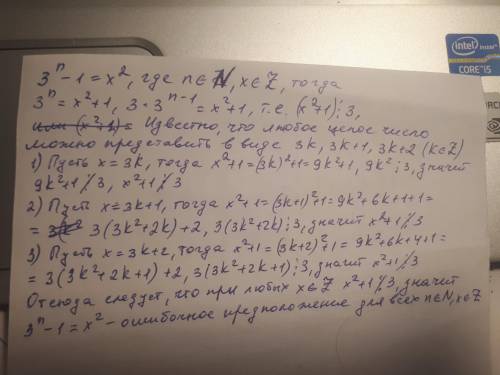 3ⁿ-1=x², где n∈N, x∈Z, тогда
3ⁿ=x²+1, 3·3ⁿ⁻¹=x²+1, т.е. (x²+1)⋮3,
Известно, что любое целое число
можно представить в виде 3k, 3k+1, 3k+2 (k∈Z)
1) Пусть x=3k, тогда x²+1=(3k)²+1=9k²+1, 9k²⋮3, значит
9k²+1⋮̸3, x²+1⋮̸3
2) Пусть x=3k+1, тогда x²+1=(3k+1)²+1=9k²+6k+1+1=
= 3(3k²+2k)+2, 3(3k²+2k)⋮3, значит x²+1⋮̸3
3) Пусть x=3k+2, тогда x²+1=(3k+2)²+1=9k²+6k+4+1=
=3(3k²+2k+1)+2, 3(3k²+2k+1)⋮3, значит x²+1⋮̸3
Отсюда следует, что при любых x∈Z x²+1⋮̸3, значит
3ⁿ-1=x² - ошибочное предположение для всех n∈N, x∈Z
intel
inside™
CORE™ i5